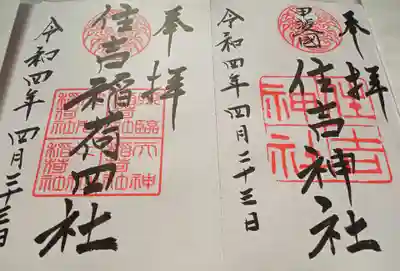 奉拝
甲斐國
住吉神社
住吉神社
令和四年四月二十三日
奉拝
住吉稲荷四社
令和四年四月二十三日